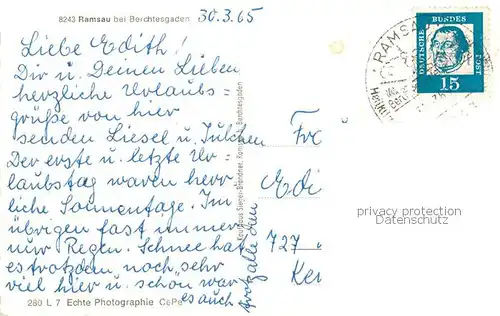 8243 Ramsau bei Berchtesgaden
30.3.65
Liebe Edith!
Dir u. Deinen Lieben
herzliche Urlaubs=
grüße von hier
senden Liesel u. Julchen
Der erste u. letzte Ur=
laubstag waren herr
liche Sonnentage. Im
übrigen fast immer
nur Regen. Schnee hat
es trotzdem noch sehr
viel hier u. schön war
es auch trotz alledem
280 L 7 Echte Photographie CePe
Berchtesgaden
RAMSA
DEUTSCHE BUNDES POST
15
Fr
Edi
727
privacy protection
Datenschutz